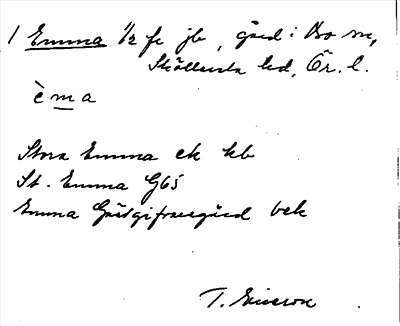 1 Emma 1/2 fr jb, gård i Bo sn,
Sköllersta hd, Ör. l.
èma
Stora Emma ek kb
St. Emma G65
Emma Gästgifvaregård bek
T. Ericsson